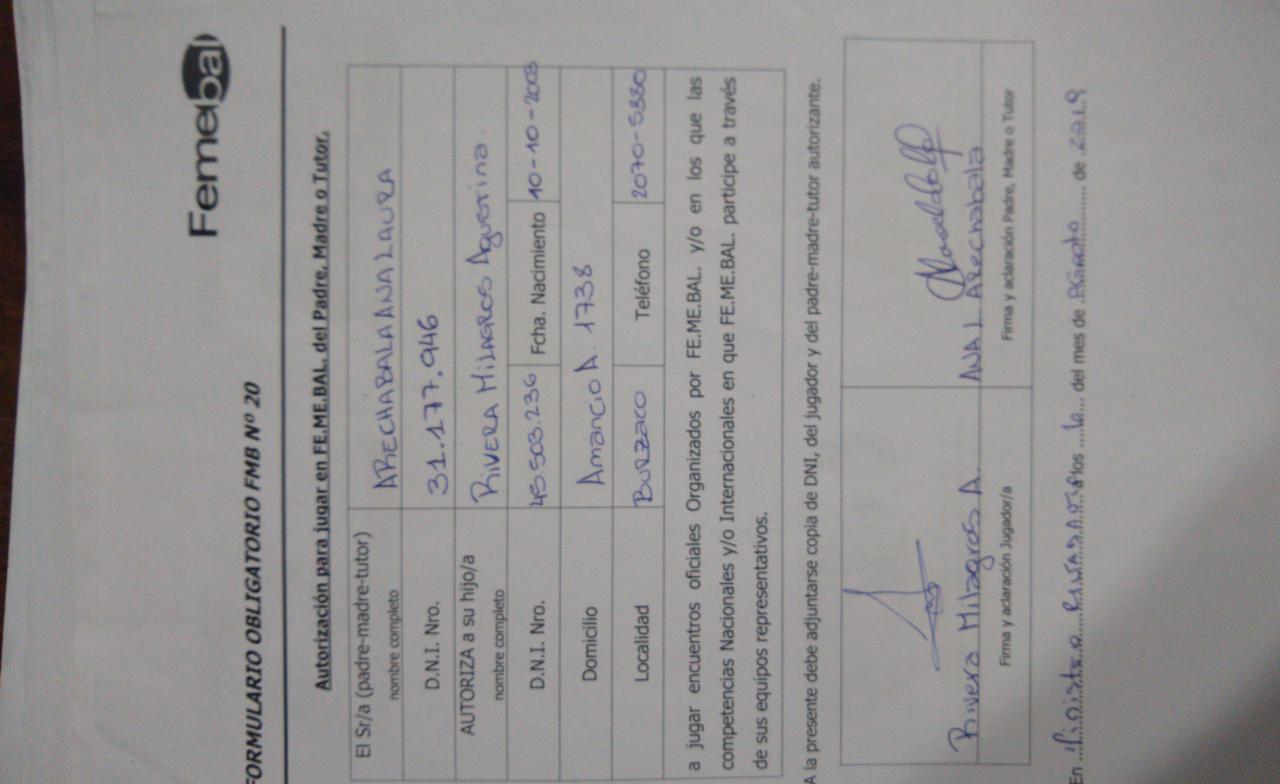 Femebal
FORMULARIO OBLIGATORIO FMB Nº 20
Autorización para jugar en FE.ME.BAL. del Padre, Madre o Tutor.
El Sr/a (padre-madre-tutor) nombre completo ARECHABALA ANA LAURA
D.N.I. Nro. 31.177.946
AUTORIZA a su hijo/a nombre completo RIVERA MILAGROS Agustina.
D.N.I. Nro. 45.503.236 Fcha. Nacimiento 10-10-2003
Domicilio Amancio A. 1738
Localidad BURZACO Teléfono 2070-5380
a jugar encuentros oficiales Organizados por FE.ME.BAL. y/o en los que las
competencias Nacionales y/o Internacionales en que FE.ME.BAL. participe a través
de sus equipos representativos.
A la presente debe adjuntarse copia de DNI, del jugador y del padre-madre-tutor autorizante.
Rivera Milagros A. ANA L Arechabala
Firma y aclaración Jugador/a Firma y aclaración Padre, Madre o Tutor
En Ministro Rivadavia a los del mes de Agosto de 2019